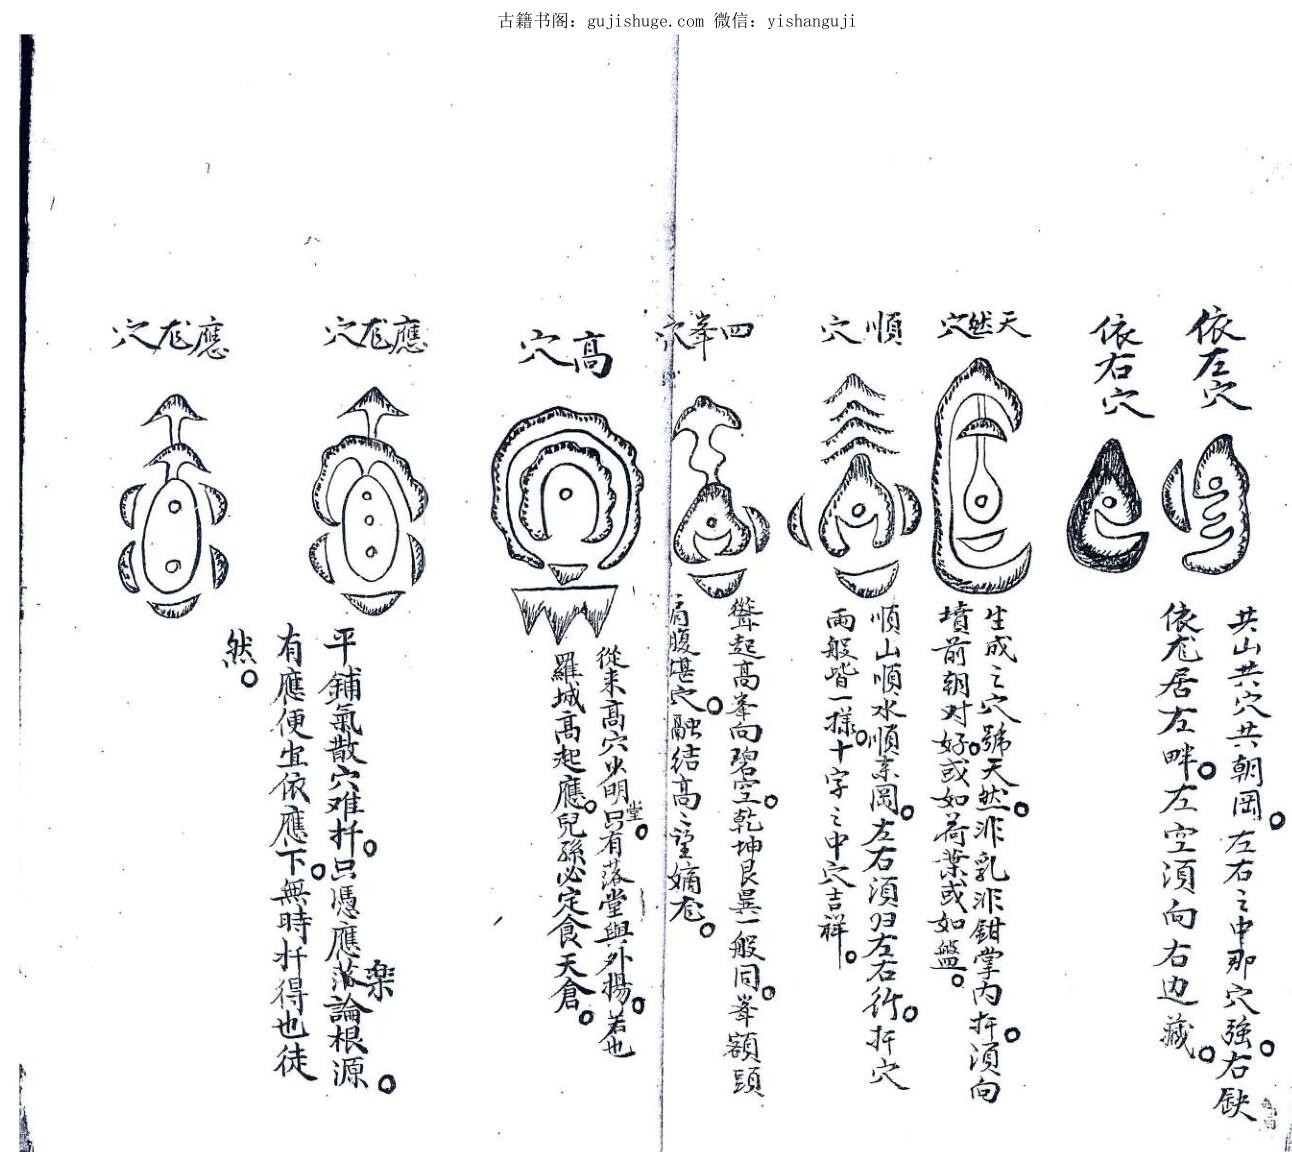 古籍书阁：gujishuge.com 微信：yishanguji
依左穴
共山共穴共朝岡。左右之中那穴強。右缺
依尨居左畔。左空湏向右边藏。
依右穴
天然穴
生成之穴號天然。非乳非鉗掌内扦。湏向
墳前朝对好。或如荷葉或如盤。
順穴
順山順水順来岡。左右湏归左右行。扦穴
兩般皆一樣。十字之中穴吉祥。
四峯穴
聳起高峯向碧空。乾坤艮巽一般同。峯額頭
肩腹堪穴。融結高之望嫡尨。
高穴
從来高穴少明堂。只有落堂與外揚。若也
羅城高起應。兒孫必定食天倉。
應尨穴
平鋪氣散穴难扦。只憑應落論根源。
樂
有應便宜依應下。無時扦得也徒
然。
應尨穴